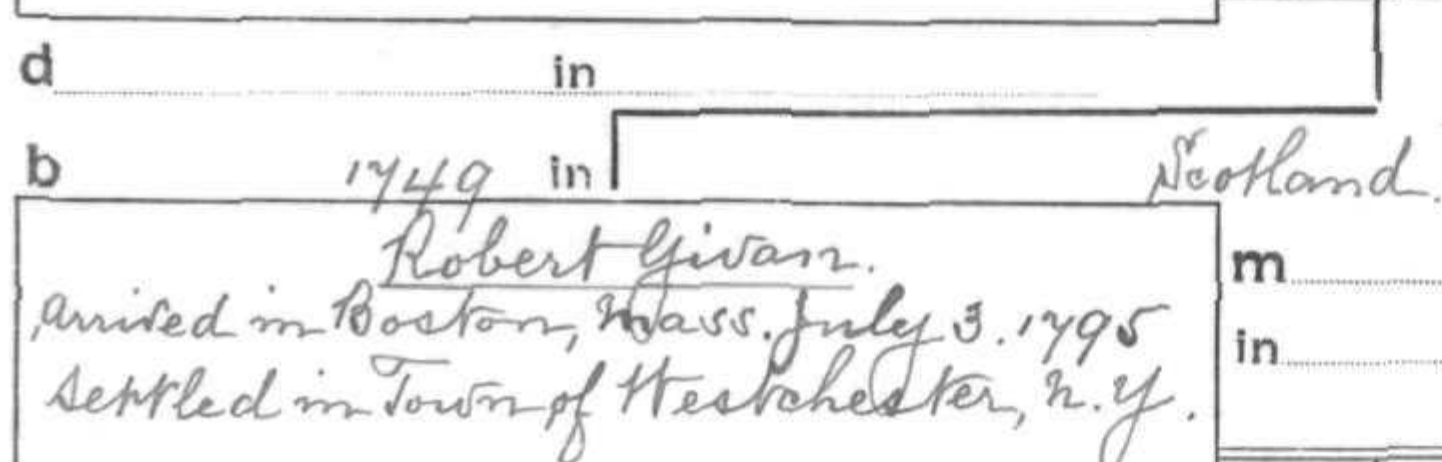 d in
b 1749 in Scotland.
Robert Givan.
m
arrived in Boston, Mass. July 3. 1795
in
settled in Town of Westchester, N.Y.